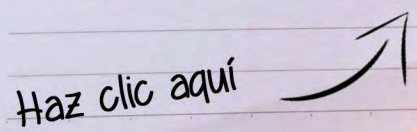 Haz clic aquí